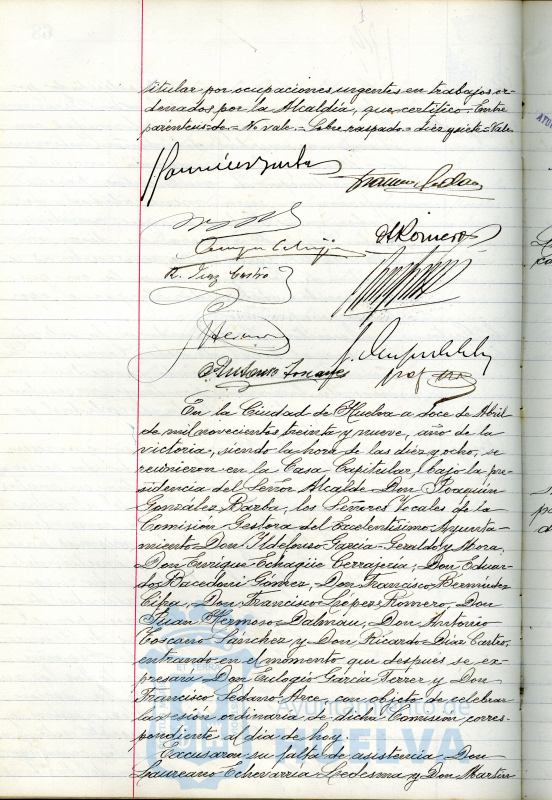 titular por ocupaciones urgentes en trabajos or-
denados por la Alcaldía, que certifico. Entre
parentesis = No vale = Sobre raspado = diez y siete = Vale
A Romero
R. Diaz Castro
Antonio Toscano
En la Ciudad de Huelva a doce de Abril
de mil novecientos treinta y nueve, año de la
victoria, siendo la hora de las diez y ocho, se
reunieron en la Casa Capitular, bajo la pre-
sidencia del Señor Alcalde Don Joaquin
González Barba, los Señores Vocales de la
Comisión Gestora del Excelentísimo Ayunta-
miento Don Ildefonso García-Geraldo y Mora,
Don Enrique Echagüe Cerrajería, Don Eduar-
do Bermúdez
Don Francisco López Romero, Don
Juan Hermoso Dalmau, Don Antonio
Toscano Sánchez y Don Ricardo Díaz Castro,
entrando en el momento que despues se ex-
presará Don Eulogio García Ferrer y Don
Francisco Sedano Arce, con objeto de celebrar
la sesión ordinaria de dicha Comisión corres-
pondiente al día de hoy.
Excusaron su falta de asistencia Don
Laureano Echevarria Ledesma y Don Martín
Ayuntamiento de
HUELVA